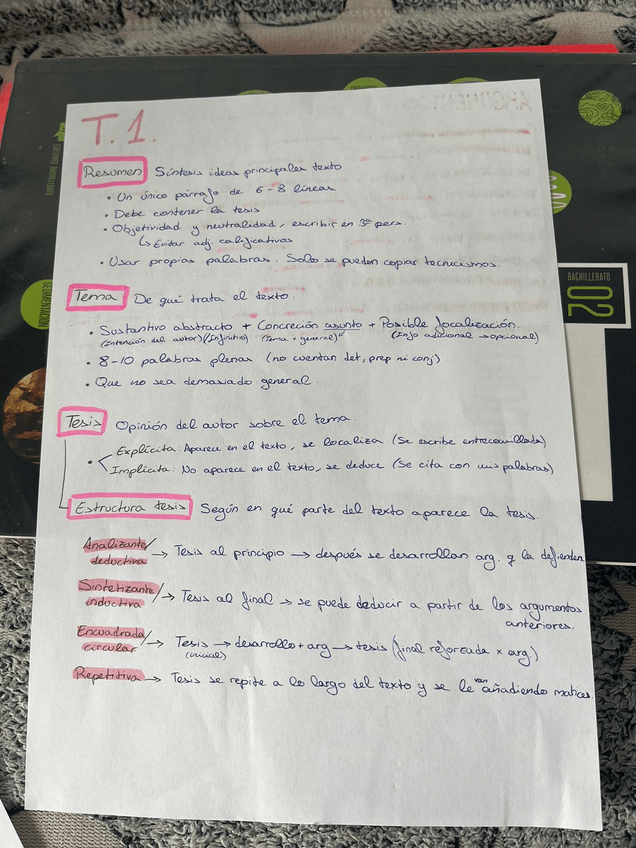 ARGUMENTOS
T.1.
Resumen Síntesis ideas principales texto
• Un único párrafo de 6-8 líneas
• Debe contener la tesis
• Objetividad y neutralidad, escribir en 3ª pers.
↳ Evitar adj calificativos
• Usar propias palabras. Solo se pueden copiar tecnicismos.
Tema De qué trata el texto.
• Sustantivo abstracto + Concreción asunto + Posible focalización.
(Intención del autor)(Infinitivo) (Tema + general) (Info adicional → opcional)
• 8-10 palabras plenas (no cuentan det, prep ni conj)
• Que no sea demasiado general.
Tesis Opinión del autor sobre el tema.
• Explícita: Aparece en el texto, se localiza (Se escribe entrecomillada)
Implícita: No aparece en el texto, se deduce (Se cita con mis palabras)
Estructura tesis Según en qué parte del texto aparece la tesis.
Analizante/
deductiva → Tesis al principio → después se desarrollan arg. q la defienden
Sintetizante/
inductiva → Tesis al final → se puede deducir a partir de los argumentos
anteriores.
Encuadrada/
circular → Tesis → desarrollo + arg → tesis (final reforzada x arg)
(inicial)
Repetitiva → Tesis se repite a lo largo del texto y se le van añadiendo matices.
BACHILLERATO
02